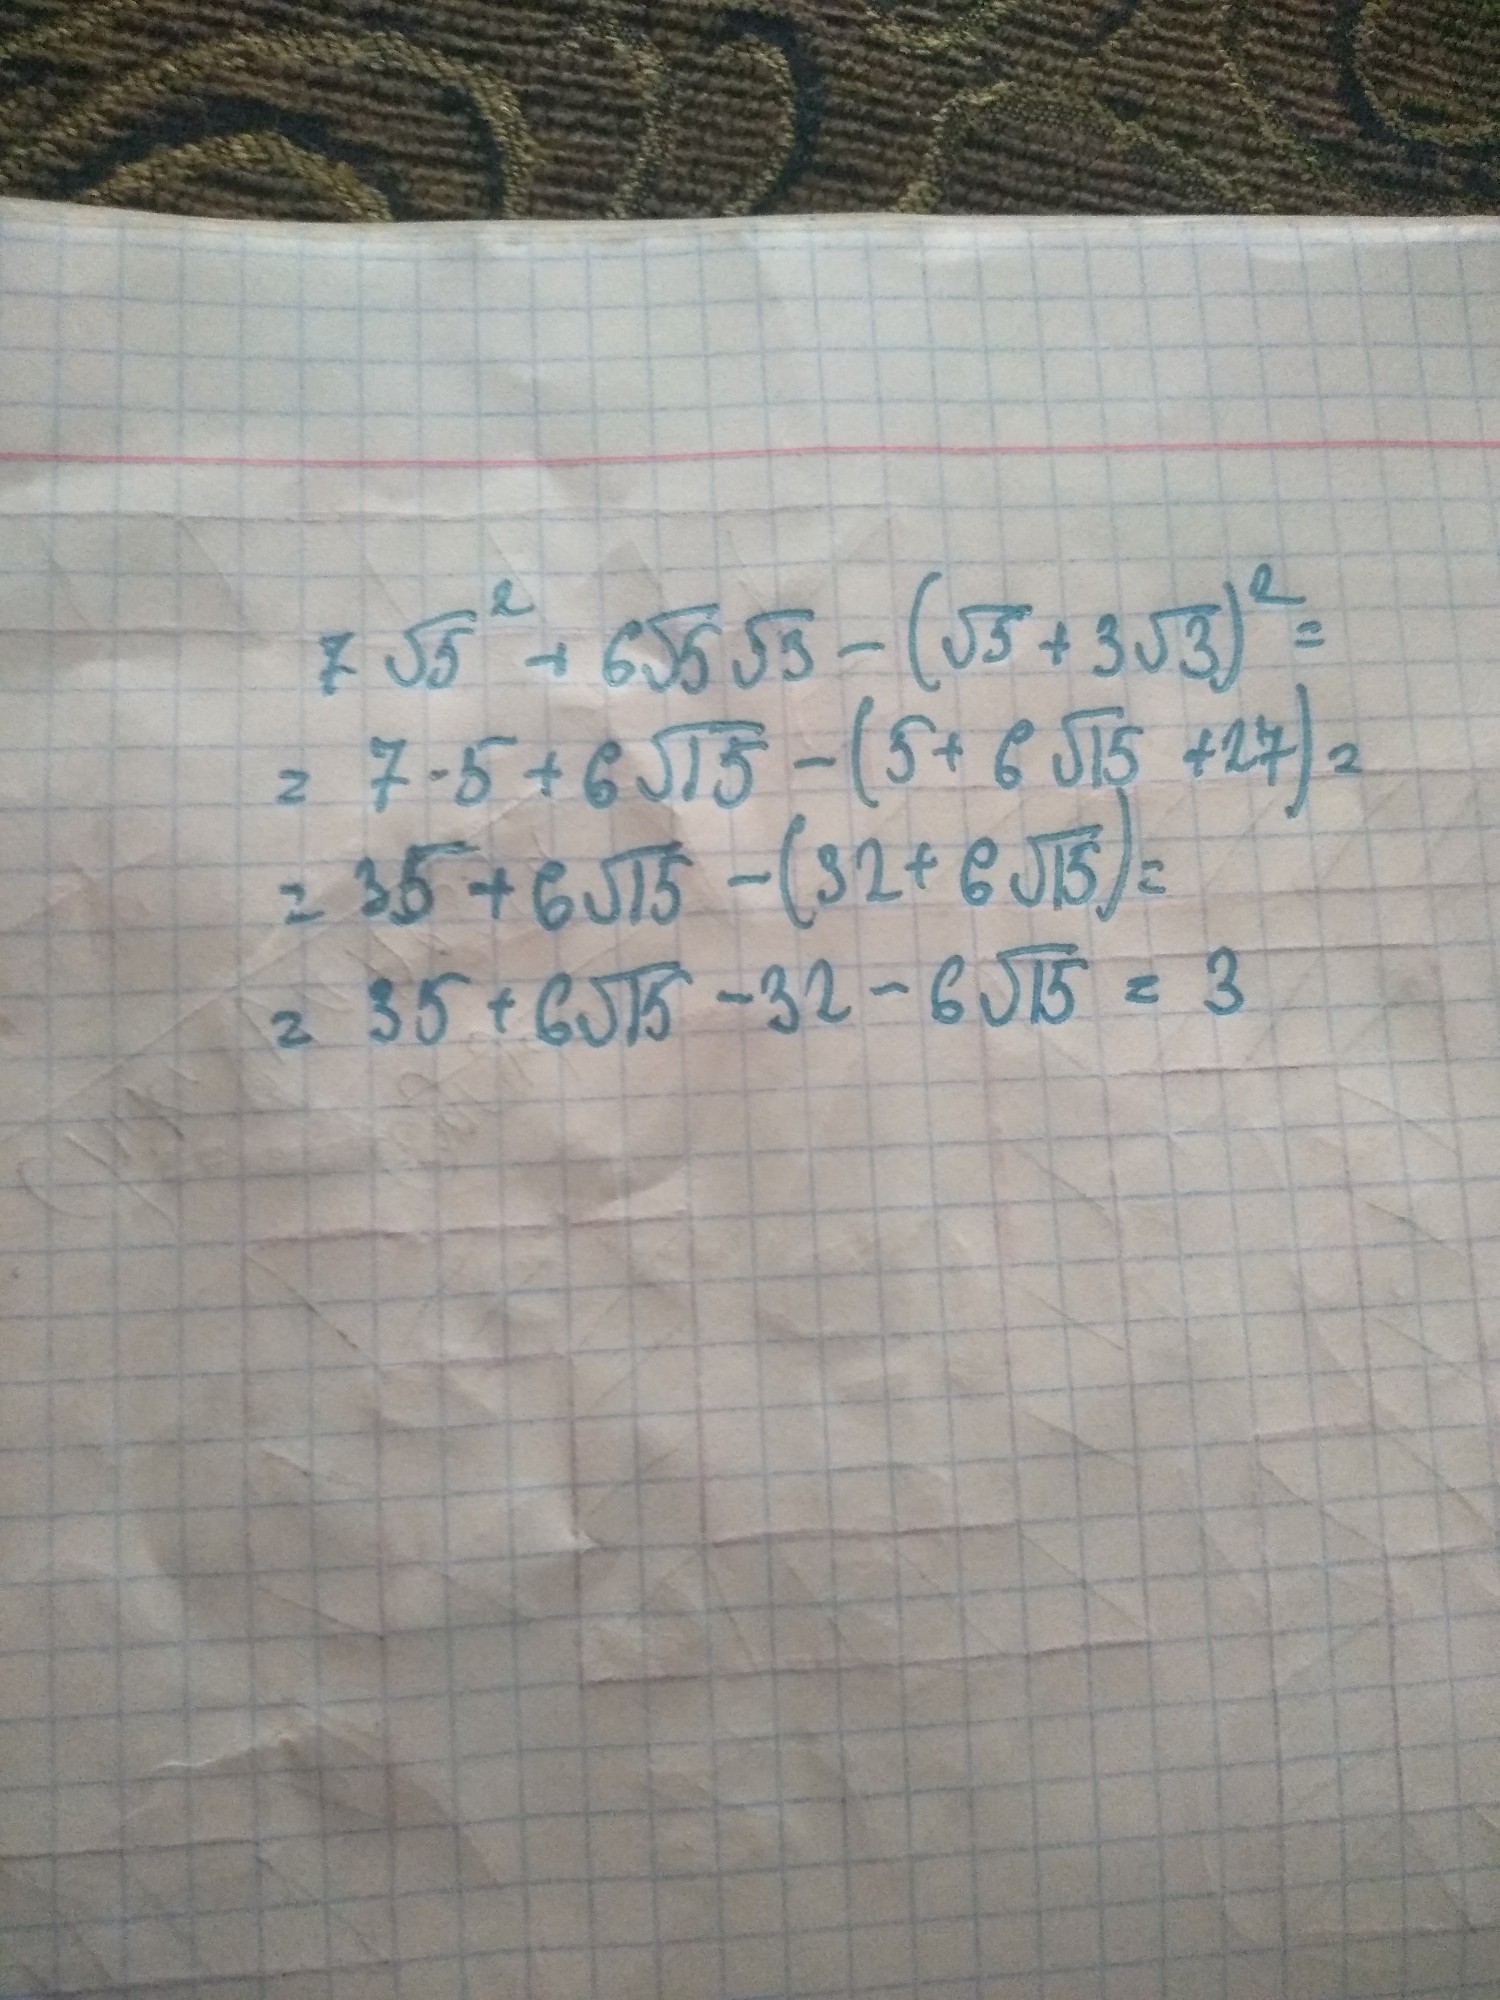 7√5² + 6√5√3 − (√5 + 3√3)² =
= 7·5 + 6√15 − (5 + 6√15 + 27) =
= 35 + 6√15 − (32 + 6√15) =
= 35 + 6√15 − 32 − 6√15 = 3